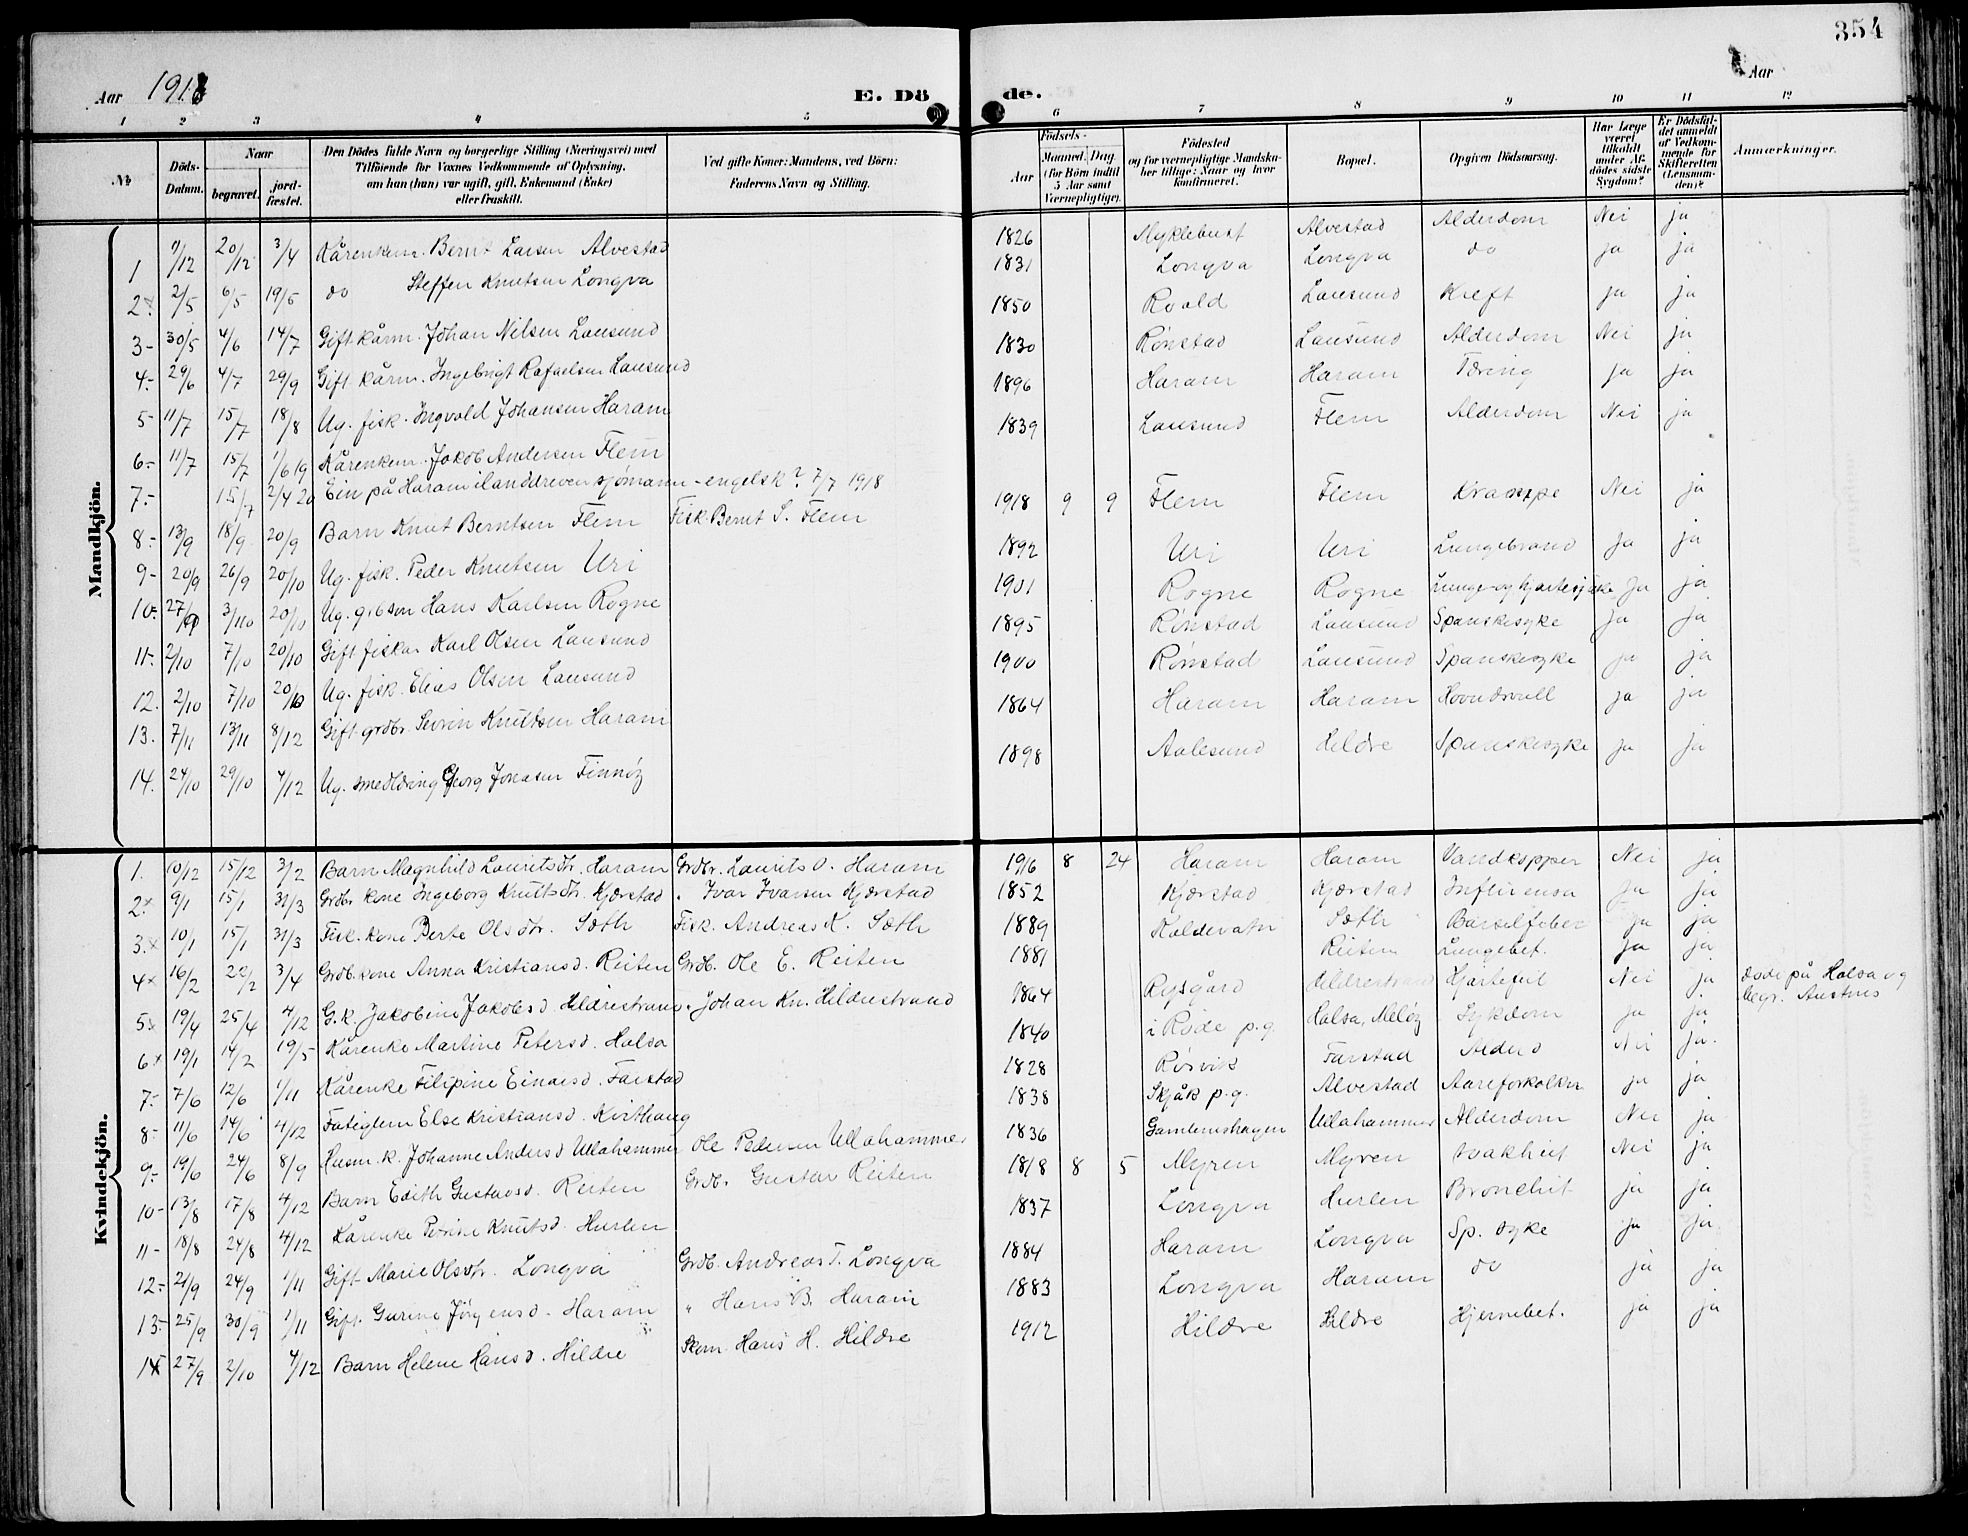 354
Aar 1918 E. Dö de. Aar
1 2 3 4 5 6 7 8 9 10 11 12
№ Döds-Datum. Naar begravet. jord-fæstet. Den Dödes fulde Navn og borgerlige Stilling (Næringsvei) med Tilföiende for Voxnes Vedkommende af Oplysning, om han (hun) var ugift, gift, Enkemand (Enke) eller fraskilt. Ved gifte Koner: Mandens, ved Börn: Faderens Navn og Stilling. Födsels- Aar Maaned. Dag. (for Börn indtil 5 Aar samt Værnepligtige). Födested og for værnepligtige Mandska-ber tillige: Naar og hvor konfirmeret. Bopæl. Opgiven Dödsaarsag. Har Læge været tilkaldt under Af-dödes sidste Sygdom? Er Dödsfal-det anmeldt af Vedkom-mende for Skifteretten (Lensman-den)? Anmærkninger.
Mandkjön.
1 9/12 20/12 3/4 Kårenkem. Bernt Larsen Alvestad 1826 Myklebust Alvestad Alderdom Nei ja
2 2/5 6/5 19/5 do Steffen Knutsen Longva 1831 Longva Longva do ja ja
3- 30/5 4/6 14/7 Gift kårm. Johan Nilsen Lausund 1850 Roald Lausund Kreft ja ja
4- 29/6 4/7 29/9 Gift kårm. Ingebrigt Rafaelsen Lausund 1830 Rønstad Lausund Alderdom Nei ja
5- 11/7 15/7 18/8 Ug. fisk. Ingvald Johansen Haram 1896 Haram Haram Tæring ja ja
6- 11/7 15/7 1/6 19 Kårenkem. Jakob Andersen Flem 1839 Lausund Flem Alderdom Nei ja
7.- 15/7 2/4 20 Ein på Haram ilanddreven sjømann - engelsk? 7/7 1918
8- 13/9 18/9 20/9 Barn Knut Berntsen Flem Fisk. Bernt S. Flem 1918 9 9 Flem Flem Krampe Nei ja
9- 20/9 26/9 20/10 Ug. fisk. Peder Knutsen Uri 1892 Uri Uri Lungebrand ja ja
10- 27/9 3/10 20/10 Ug. gbson Hans Karlsen Rogne 1901 Rogne Rogne Lunge- og hjartesjuke Ja ja
11- 2/10 7/10 20/10 Gift fiskar Karl Olsen Lausund 1895 Rønstad Lausund Spanskesyke ja ja
12. 2/10 7/10 20/10 Ug. fisk. Elias Olsen Lausund 1900 Rønstad Lausund Spanskesyke ja ja
13. 7/11 13/11 8/12 Gift grdbr. Sevrin Knutsen Haram 1864 Haram Haram ja ja
14. 24/10 29/10 4/12 Ug. smedlæring Georg Jonasen Finnøy 1898 Aalesund Hildre Spanskesyke ja ja
Kvindekjön.
1. 10/12 15/12 3/2 Barn Magnhild Lauritsdtr. Haram Grdbr. Laurits O. Haram 1916 8 24 Haram Haram Vandkopper Nei ja
2 9/1 15/1 31/3 Grdbr kone Ingeborg Knutsdtr. Kjærstad " Ivar Ivarsen Kjærstad 1852 Kjærstad Kjærstad Influensa ja ja
3 10/1 15/1 31/3 Fisk. kone Berte Olsdtr. Sæth Fisk. Andreas K. Sæth 1889 Kaldevatn Sæth Barselfeber ja ja
4 16/2 22/2 3/4 Grdb. kone Anna Kristiansd. Reiten Grdb. Ole E. Reiten 1881 Reiten Lungebet. ja ja
5 19/4 25/4 4/12 G.k. Jakobine Jakobsd. Hildrestrand " Johan Kn. Hildrestrand 1864 Rysgård Hildrestrand Hjartefeil Nei ja døde på Halsa og begr. Austnes
6 19/1 14/2 19/5 Kårenke Martine Petersd. Halsa 1840 i Røde p.g. Halsa, Meløy Sykdom ja ja
7- 7/6 12/6 1/11 Kårenke Filipine Einarsd. Farstad 1828 Røsvik Farstad Alderd Nei ja.
8- 11/6 14/6 4/12 Fatiglem Else Kristiansd. Kvithaug 1838 Skjåk p.g. Alvestad Aareforkalkn ja ja
9- 19/6 24/6 8/9 Husm. k. Johanne Andersd Ullahammer Ole Pedersen Ullahammer 1836 Gamlemshagen Ullahammer Alderdom Nei ja
10- 13/8 17/8 4/12 Barn Edith Gustavsd. Reiten Grdb. Gustav Reiten 1818 8 5 Myren Myren Nei ja
11- 18/8 24/8 4/12 Kårenke Petrine Knutsd. Hurlen 1837 Longva Hurlen Bronchit ja ja
12- 21/9 24/9 1/11 Gift Marie Olsdtr. Longva Grdb. Andreas T. Longva 1884 Haram Longva Sp. syke ja ja
13- 25/9 30/9 1/11 Gift. Gurine Jörgensd. Haram " Hans B. Haram 1883 Longva Haram do ja ja
14 27/9 2/10 4/12 Barn Helene Hansd. Hildre Skom. Hans H. Hildre 1912 Hildre Hildre Hjernebet. ja ja